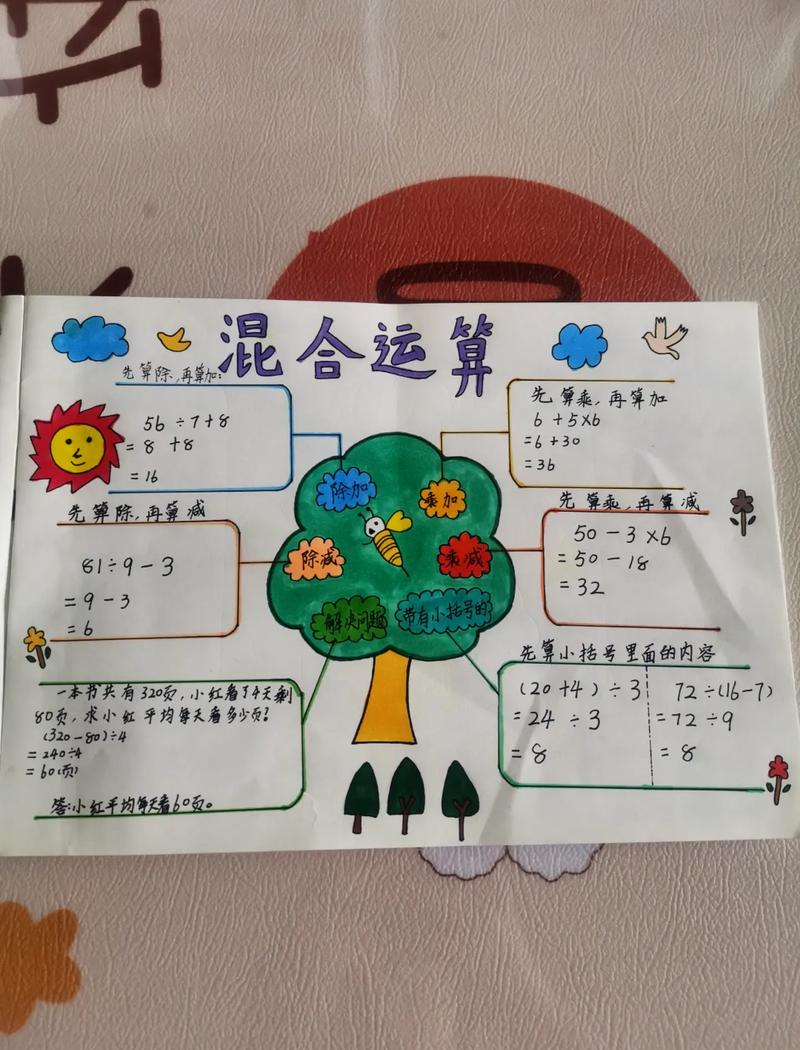 混合运算
先算除，再算加：
56÷7+8
=8+8
=16
先算除，再算减
81÷9-3
=9-3
=6
一本书共有320页，小红看了4天剩
80页，求小红平均每天看多少页？
(320-80)÷4
=240÷4
=60(页)
答：小红平均每天看60页。
除加
乘加
除减
乘减
解决问题
带有小括号的
先算乘，再算加
6+5×6
=6+30
=36
先算乘，再算减
50-3×6
=50-18
=32
先算小括号里面的内容
(20+4)÷3
=24÷3
=8
72÷(16-7)
=72÷9
=8